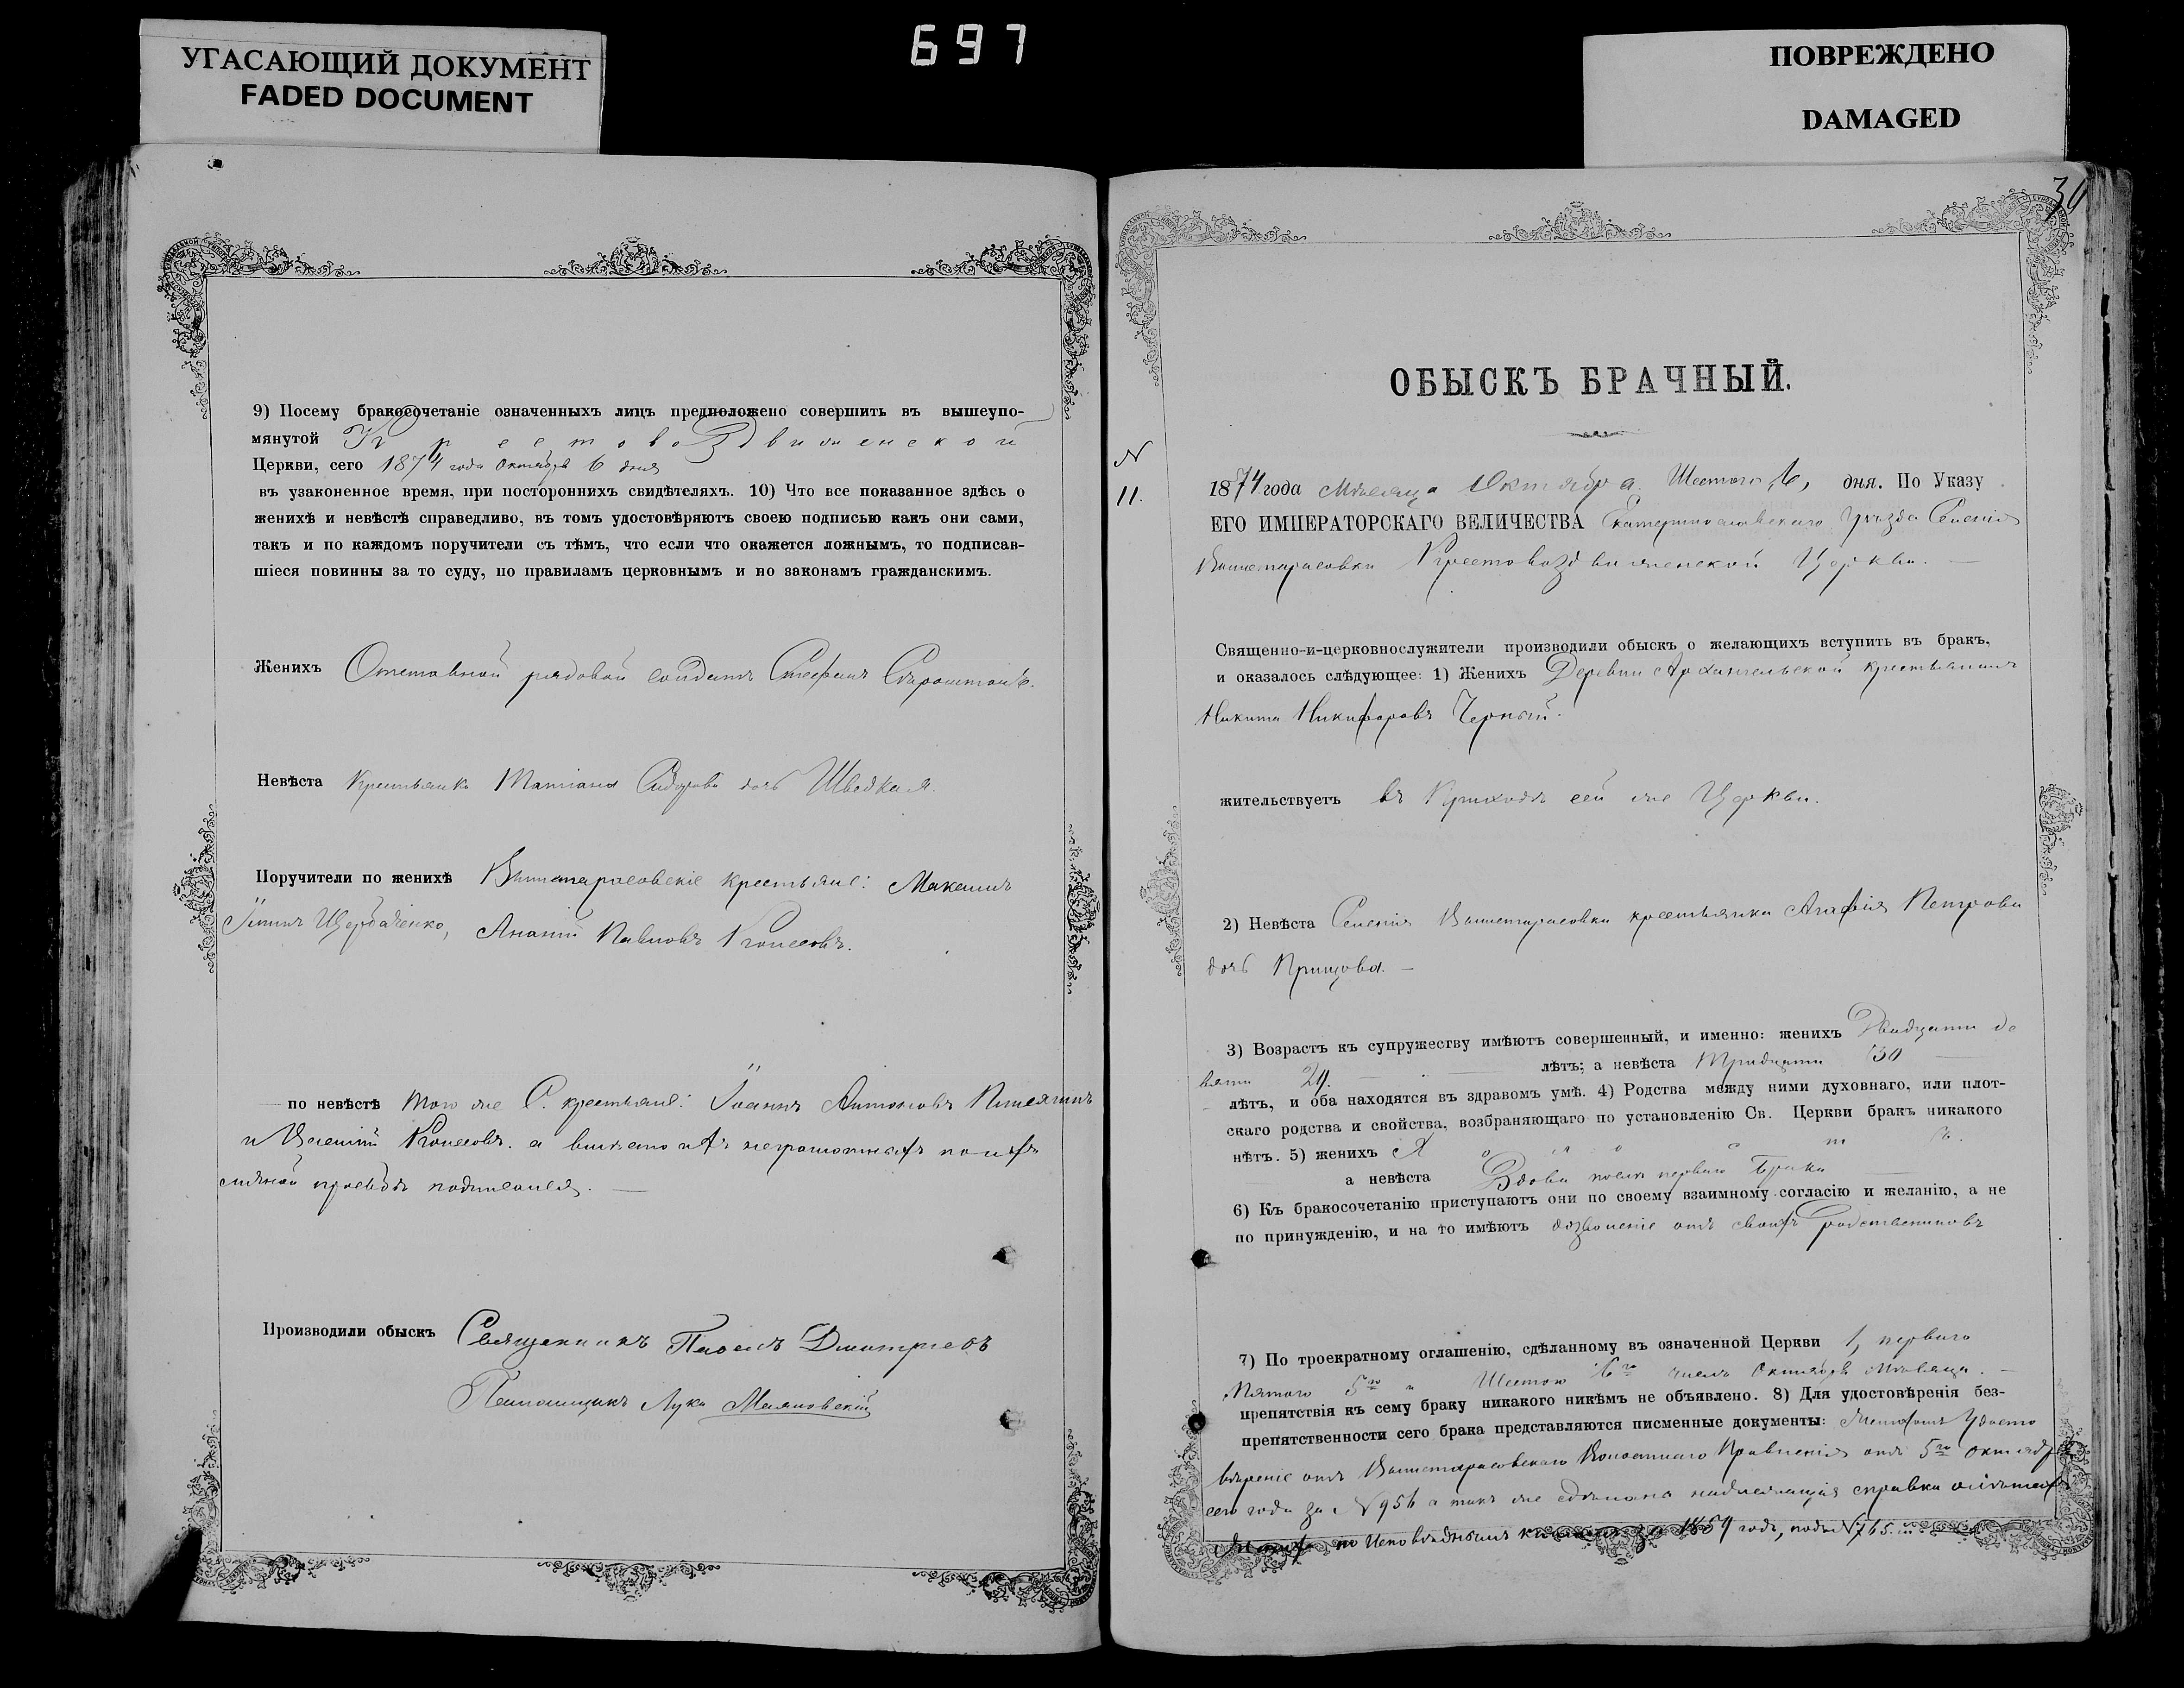 УГАСАЮЩИЙ ДОКУМЕНТ
FADED DOCUMENT
697
ПОВРЕЖДЕНО
DAMAGED
9) Посему бракосочетаніе означенныхъ лицъ предположено совершить въ вышеупо-
мянутой Крестовоздвиженской
Церкви, сего 1874 года Октября 6 дня
въ узаконенное время, при постороннихъ свидѣтеляхъ. 10) Что все показанное здѣсь о
женихѣ и невѣстѣ справедливо, въ томъ удостовѣряютъ своею подписью какъ они сами,
такъ и по каждомъ поручители съ тѣмъ, что если что окажется ложнымъ, то подписав-
шіеся повинны за то суду, по правиламъ церковнымъ и по законамъ гражданскимъ.
Женихъ Отставной рядовой солдатъ Стефанъ
Невѣста Крестьянка Татіана Сидорова дочь Шведкая.
Поручители по женихѣ Вышетарасовскіе крестьяне: Максимъ
Щербаченко, Ананій Павловъ
по невѣстѣ того же С. крестьяне: Іоаннъ Антоновъ
и а вмѣсто ихъ неграмотныхъ
подписался.
Производили обыскъ Священникъ Павелъ Дмитріевъ
Лука
30
ОБЫСКЪ БРАЧНЫЙ.
N
11.
1874 года Мѣсяца Октября Шестого 6, дня. По Указу
ЕГО ИМПЕРАТОРСКАГО ВЕЛИЧЕСТВА Екатеринославскаго Уѣзда Селенія
Вышетарасовки Крестовоздвиженской Церкви.
Священно-и-церковнослужители производили обыскъ о желающихъ вступить въ бракъ,
и оказалось слѣдующее: 1) Женихъ Деревни Архангельской крестьянинъ
Никита Никифоровъ Черный.
жительствуетъ въ Приходѣ сей же Церкви.
2) Невѣста Селенія Вышетарасовки крестьянка Агафія Петрова
дочь
3) Возрастъ къ супружеству имѣютъ совершенный, и именно: женихъ Двадцати де
вяти 29. лѣтъ; а невѣста Тридцати 30
лѣтъ, и оба находятся въ здравомъ умѣ. 4) Родства между ними духовнаго, или плот-
скаго родства и свойства, возбраняющаго по установленію Св. Церкви бракъ никакого
нѣтъ. 5) женихъ Холостъ.
а невѣста Вдова послѣ перваго брака
6) Къ бракосочетанію приступаютъ они по своему взаимному согласію и желанію, а не
по принужденію, и на то имѣютъ дозволеніе отъ своихъ родственниковъ
7) По троекратному оглашенію, сдѣланному въ означенной Церкви 1, перваго
Пятого 5го и Шестого 6го числъ Октября Мѣсяца.
препятствія къ сему браку никакого никѣмъ не объявлено. 8) Для удостовѣренія без-
препятственности сего брака представляются писменные документы: Удосто
вѣреніе отъ Вышетарасовскаго Волостнаго Правленія отъ 5го Октября
сего года за N 956 а такъ же сдѣлана надлежащая справка
по Исповѣднымъ книгамъ за год, подъ N 765.